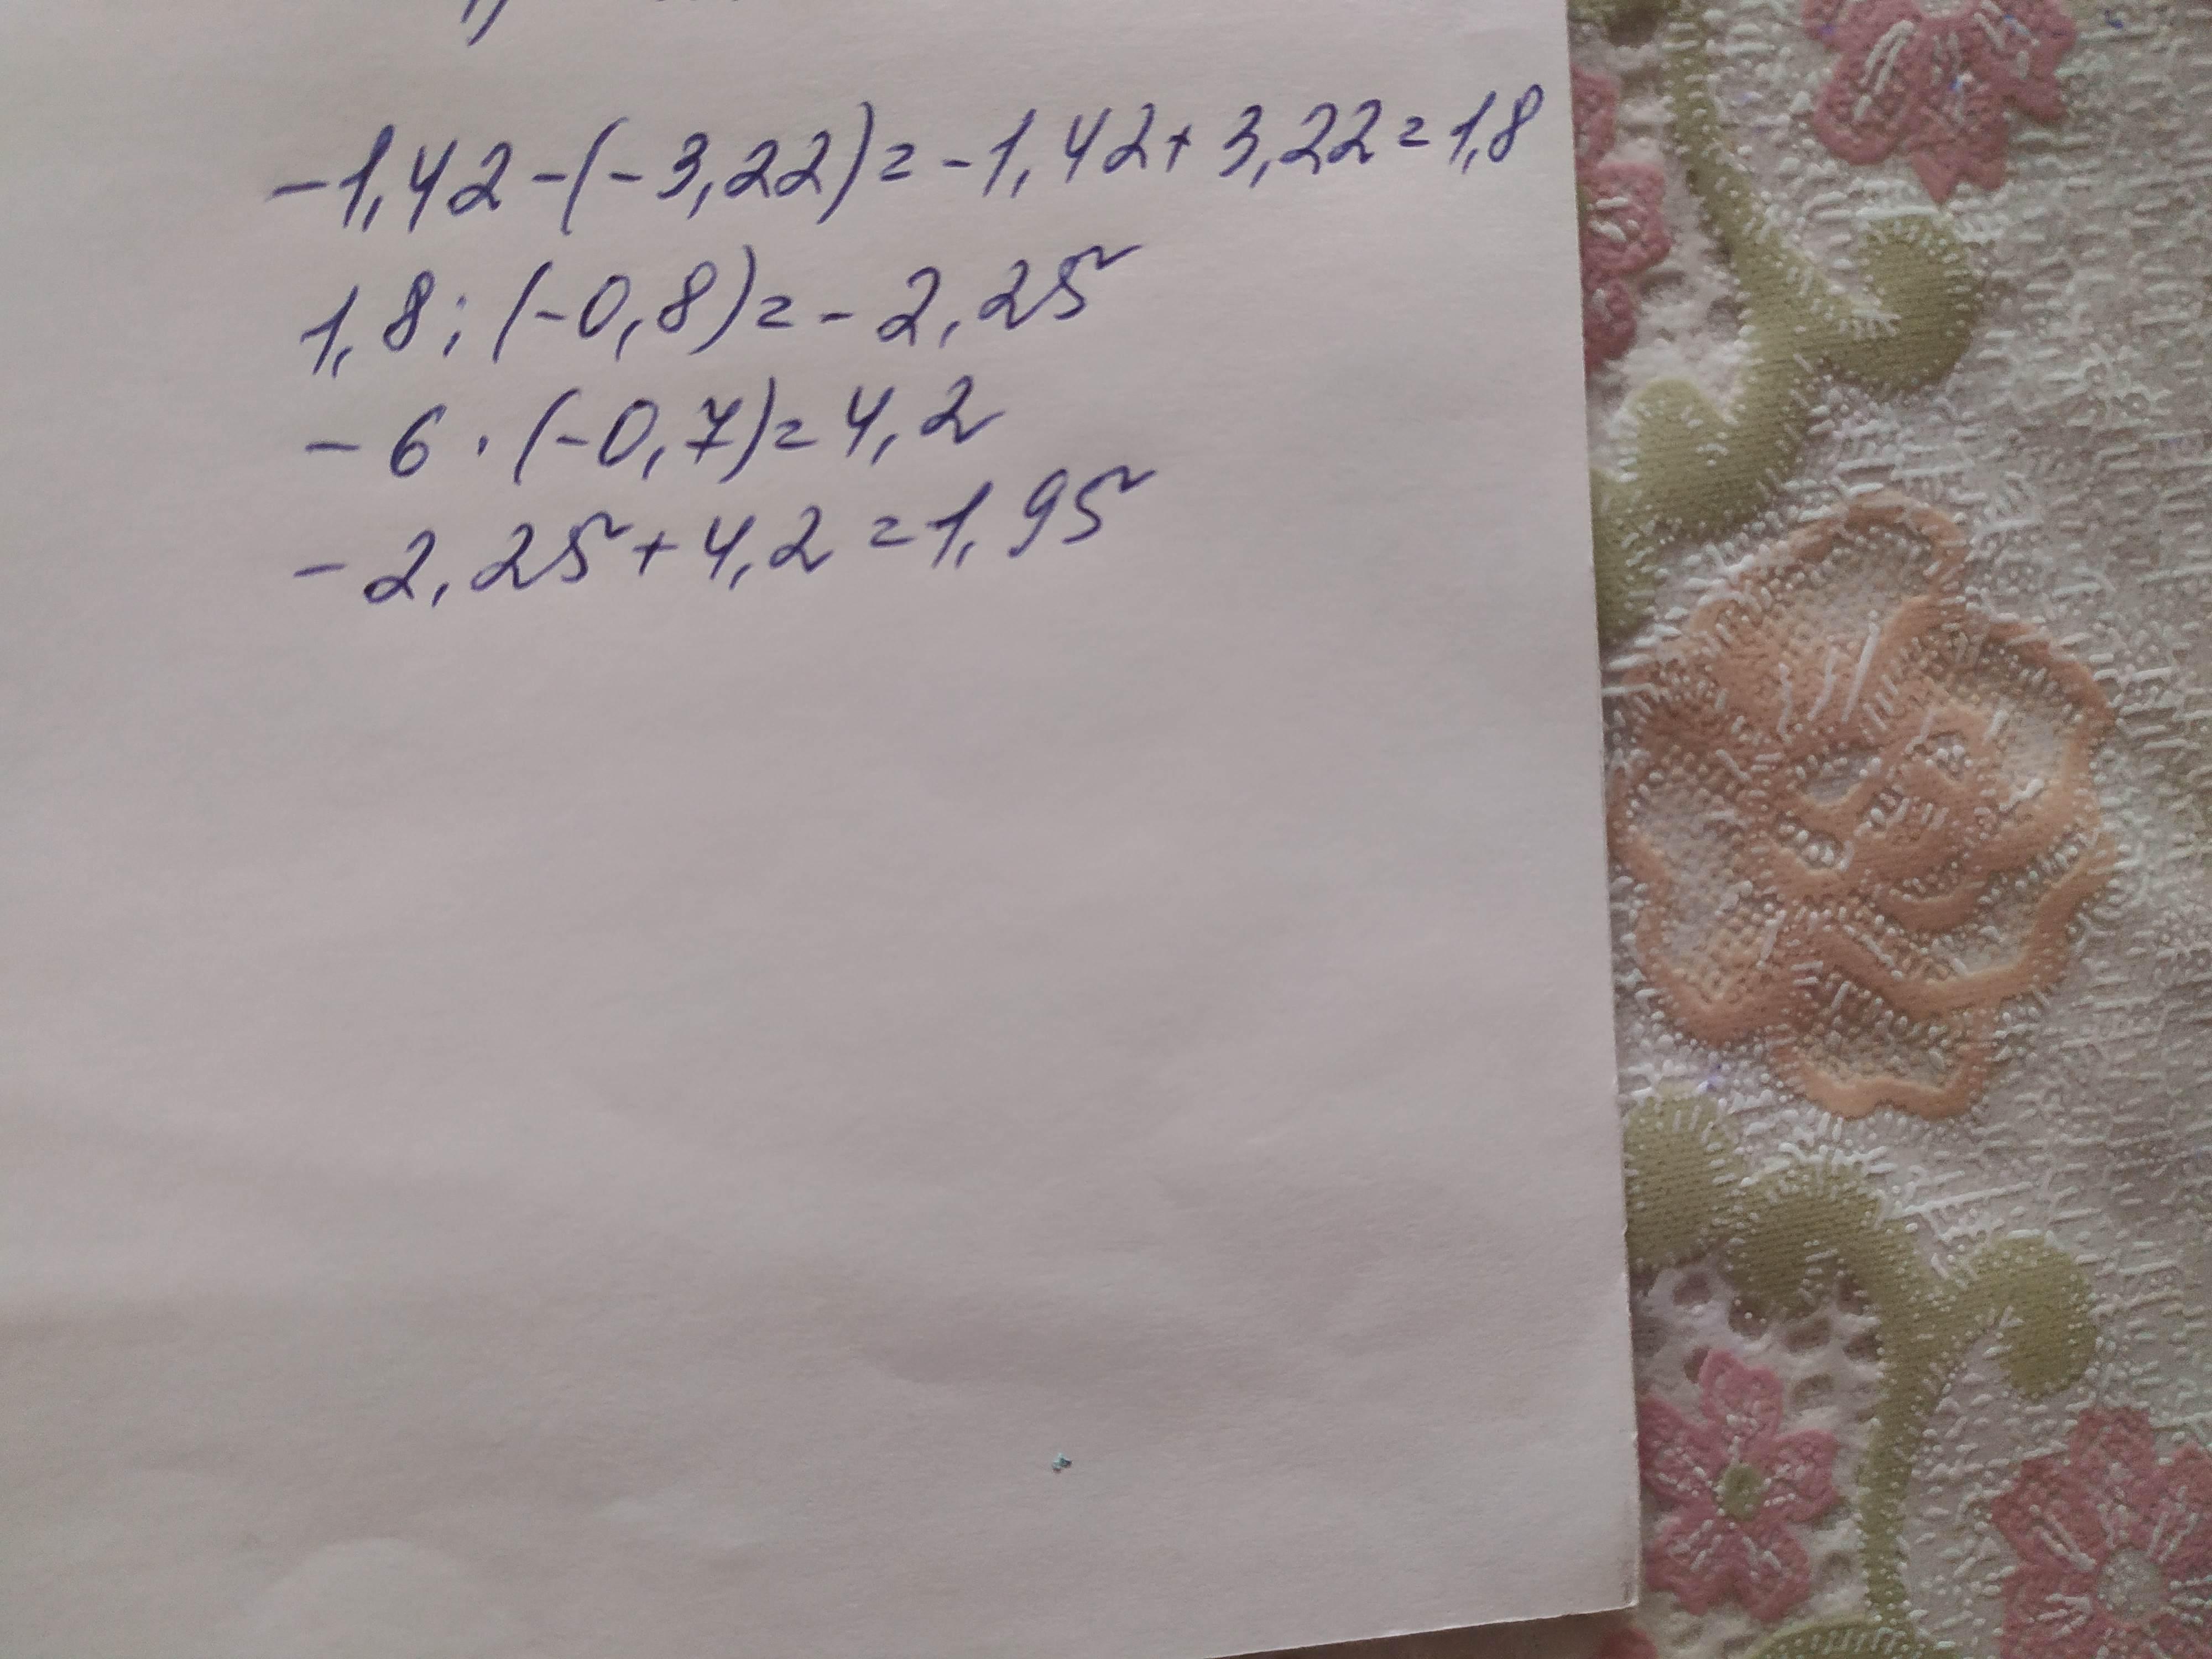 -1,42-(-3,22)=-1,42+3,22=1,8
1,8:(-0,8)=-2,25
-6·(-0,7)=4,2
-2,25+4,2=1,95